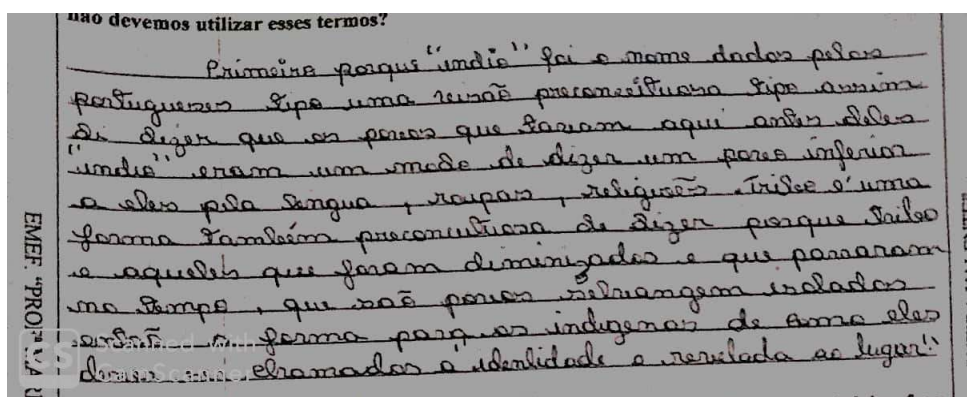 não devemos utilizar esses termos?
Primeiro porque "indio" foi o nome dados pelos
portugueses tipo uma visão preconceituosa tipo assim
di dizer que os povos que tavam aqui antes deles
"indio" eram um modo de dizer um povo inferior
a eles pela lingua, roupas, religiões. Tribo é uma
forma também preconceituosa de dizer porque tribo
e aqueles que foram diminizados e que pararam
no tempo, que são povos isolados
então a forma para os indigenas de
chamados a identidade e revelada ao lugar!
EMEF. "PROFª IVA
CS Scanned with
CamScanner